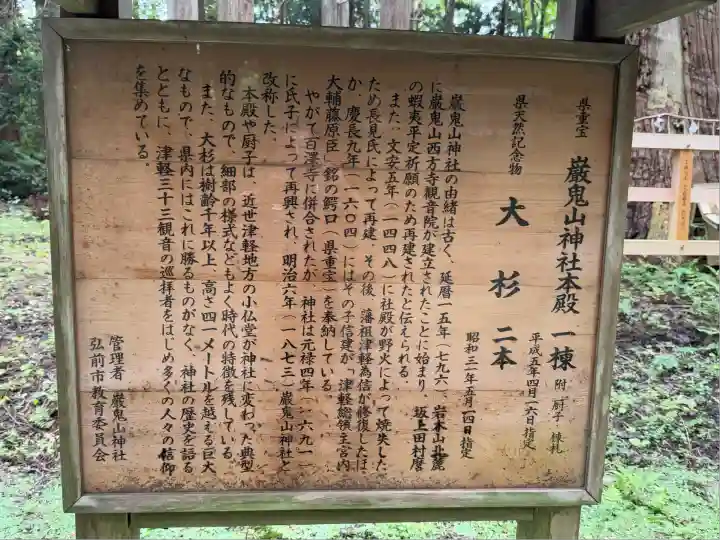 県重宝 巌鬼山神社本殿 一棟 附 厨子 棟札
平成五年四月二六日指定
県天然記念物 大杉 二本
昭和三一年五月一四日指定
巌鬼山神社の由緒は古く、延暦一五年(七九六)、岩木山北麓
に巌鬼山西方寺観音院が建立されたことに始まり、坂上田村麿
の蝦夷平定祈願のため再建されたと伝えられる。
また、文安五年(一四四八)に社殿が野火によって焼失した
ため長見氏によって再建、その後、藩祖津軽為信が修復したほ
か、慶長九年(一六〇四)にはその子信建が「津軽総領主宮内
大輔藤原臣」銘の鰐口(県重宝)を奉納している。
やがて百澤寺に併合されたが、神社は元禄四年(一六九一)
に氏子によって再興され、明治六年(一八七三)巌鬼山神社と
改称した。
本殿や厨子は、近世津軽地方の小仏堂が神社に変わった典型
的なもので、細部の様式などもよく時代の特徴を残している。
また、大杉は樹齢千年以上、高さ四一メートルを越える巨大
なもので、県内にはこれに勝るものがなく、神社の歴史を語る
とともに、津軽三十三観音の巡拝者をはじめ多くの人々の信仰
を集めている。
管理者 巌鬼山神社
弘前市教育委員会